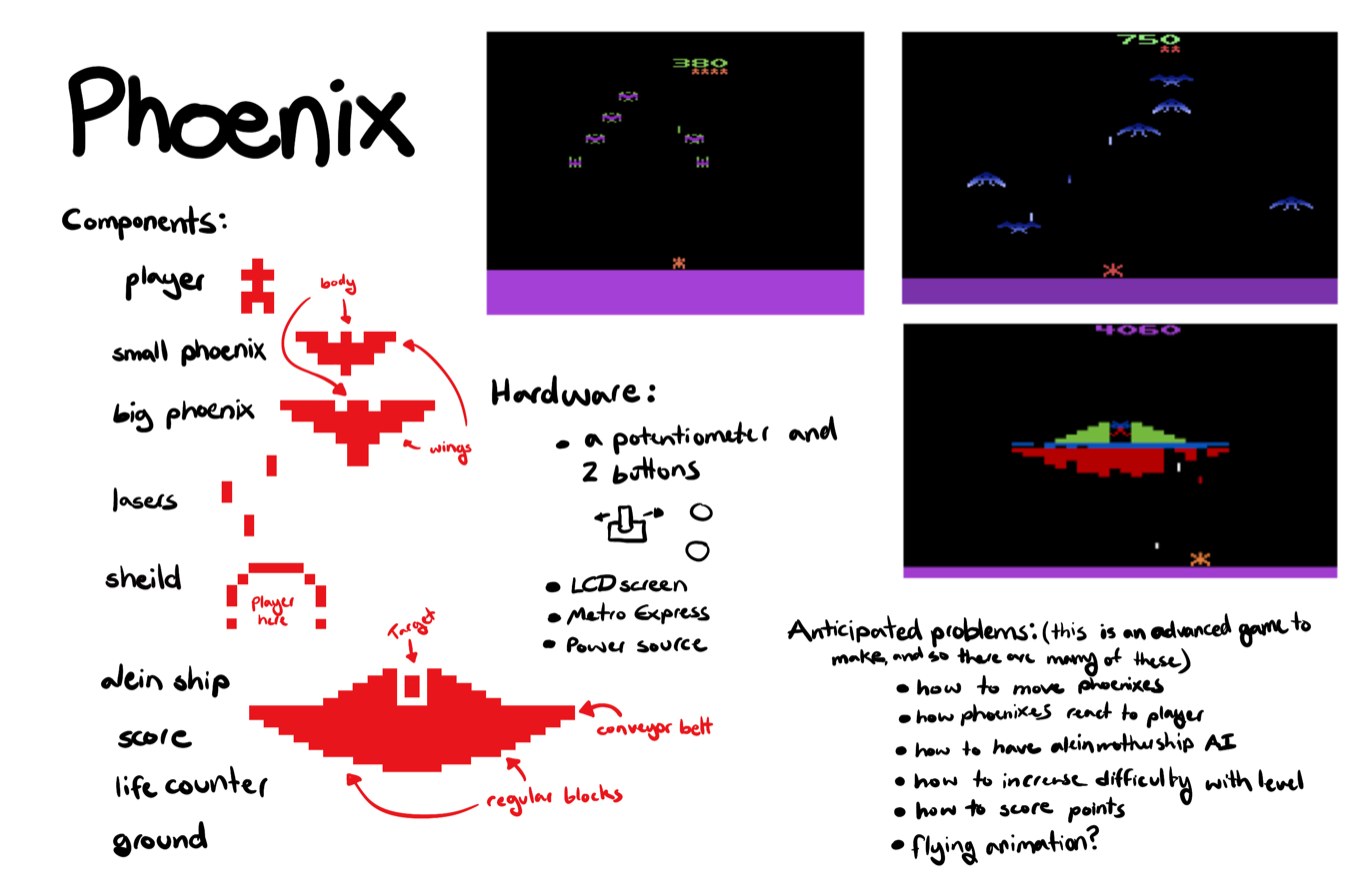 Phoenix
380
750
4060
Components:
player
body
small phoenix
big phoenix
wings
lasers
sheild
player
here
Target
alein ship
conveyor belt
score
life counter
regular blocks
ground
Hardware:
• a potentiometer and
2 buttons
• LCD screen
• Metro Express
• Power source
Anticipated problems: (this is an advanced game to
make, and so there are many of these)
• how to move phoenixes
• how phoenixes react to player
• how to have alein mothership AI
• how to increase difficulty with level
• how to score points
• flying animation?